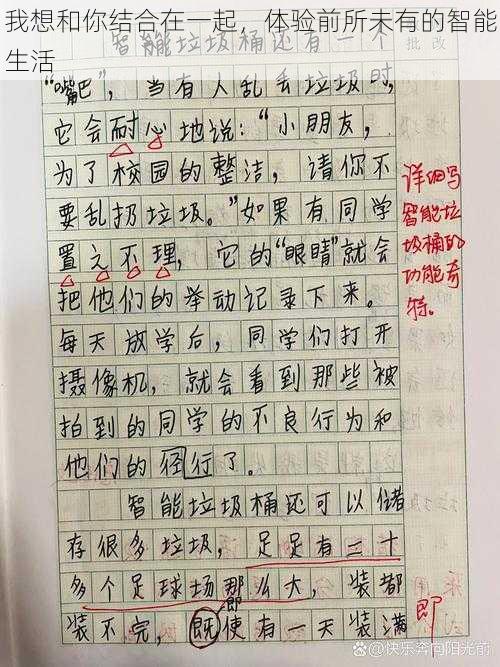 我想和你结合在一起，体验前所未有的智能
生活
智能垃圾桶还有一个
“嘴巴”，当有人乱丢垃圾时，
它会耐心地说：“小朋友，
为了校园的整洁，请你不
要乱扔垃圾。”如果有同学
置之不理，它的“眼睛”就会
把他们的举动记录下来。
每天放学后，同学们打开
摄像机，就会看到那些被
拍到的同学的不良行为和
他们的径行了。
智能垃圾桶还可以储
存很多垃圾，足足有三十
多个足球场那么大，装都
即
装不完，既使有一天装满
详细写
智能垃
圾桶的
功能奇
特。
即
百家号/快乐奔向阳光前